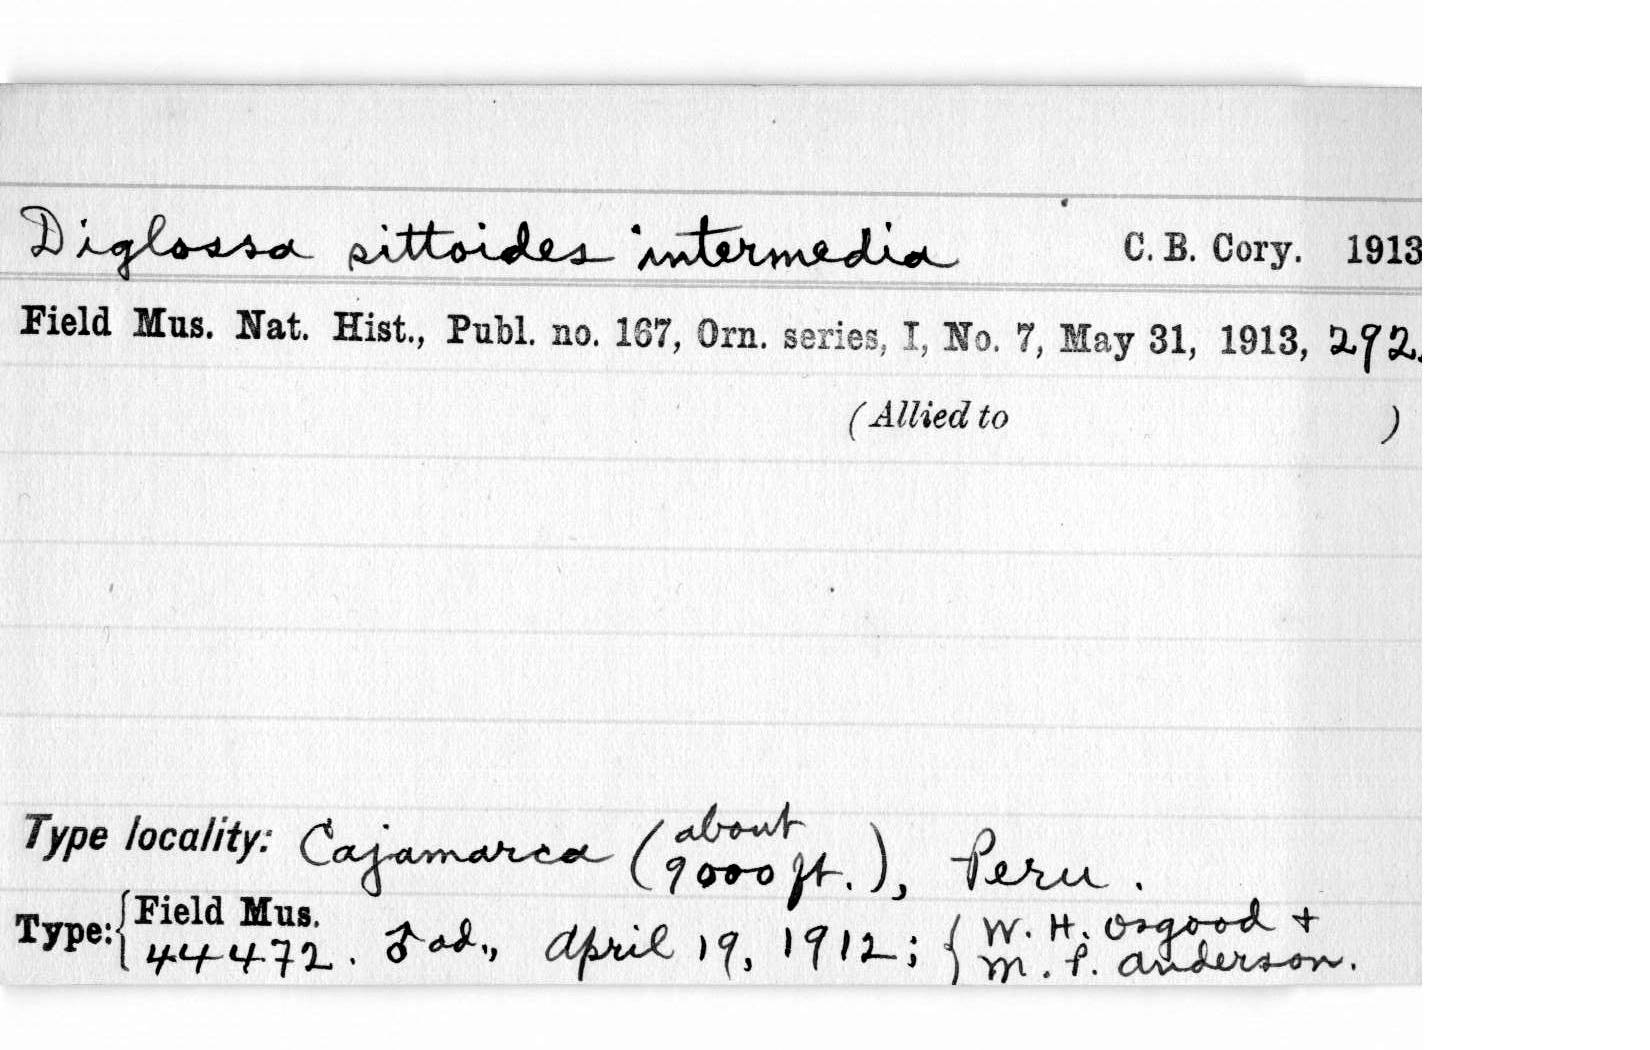 Diglossa sittoides intermedia C. B. Cory. 1913
Field Mus. Nat. Hist., Publ. no. 167, Orn. series, I, No. 7, May 31, 1913, 292.
(Allied to )
Type locality: Cajamarca (about 9000 ft.), Peru.
Type: { Field Mus. 44472. ♂ ad., April 19, 1912; { W. H. Osgood + M. P. Anderson.